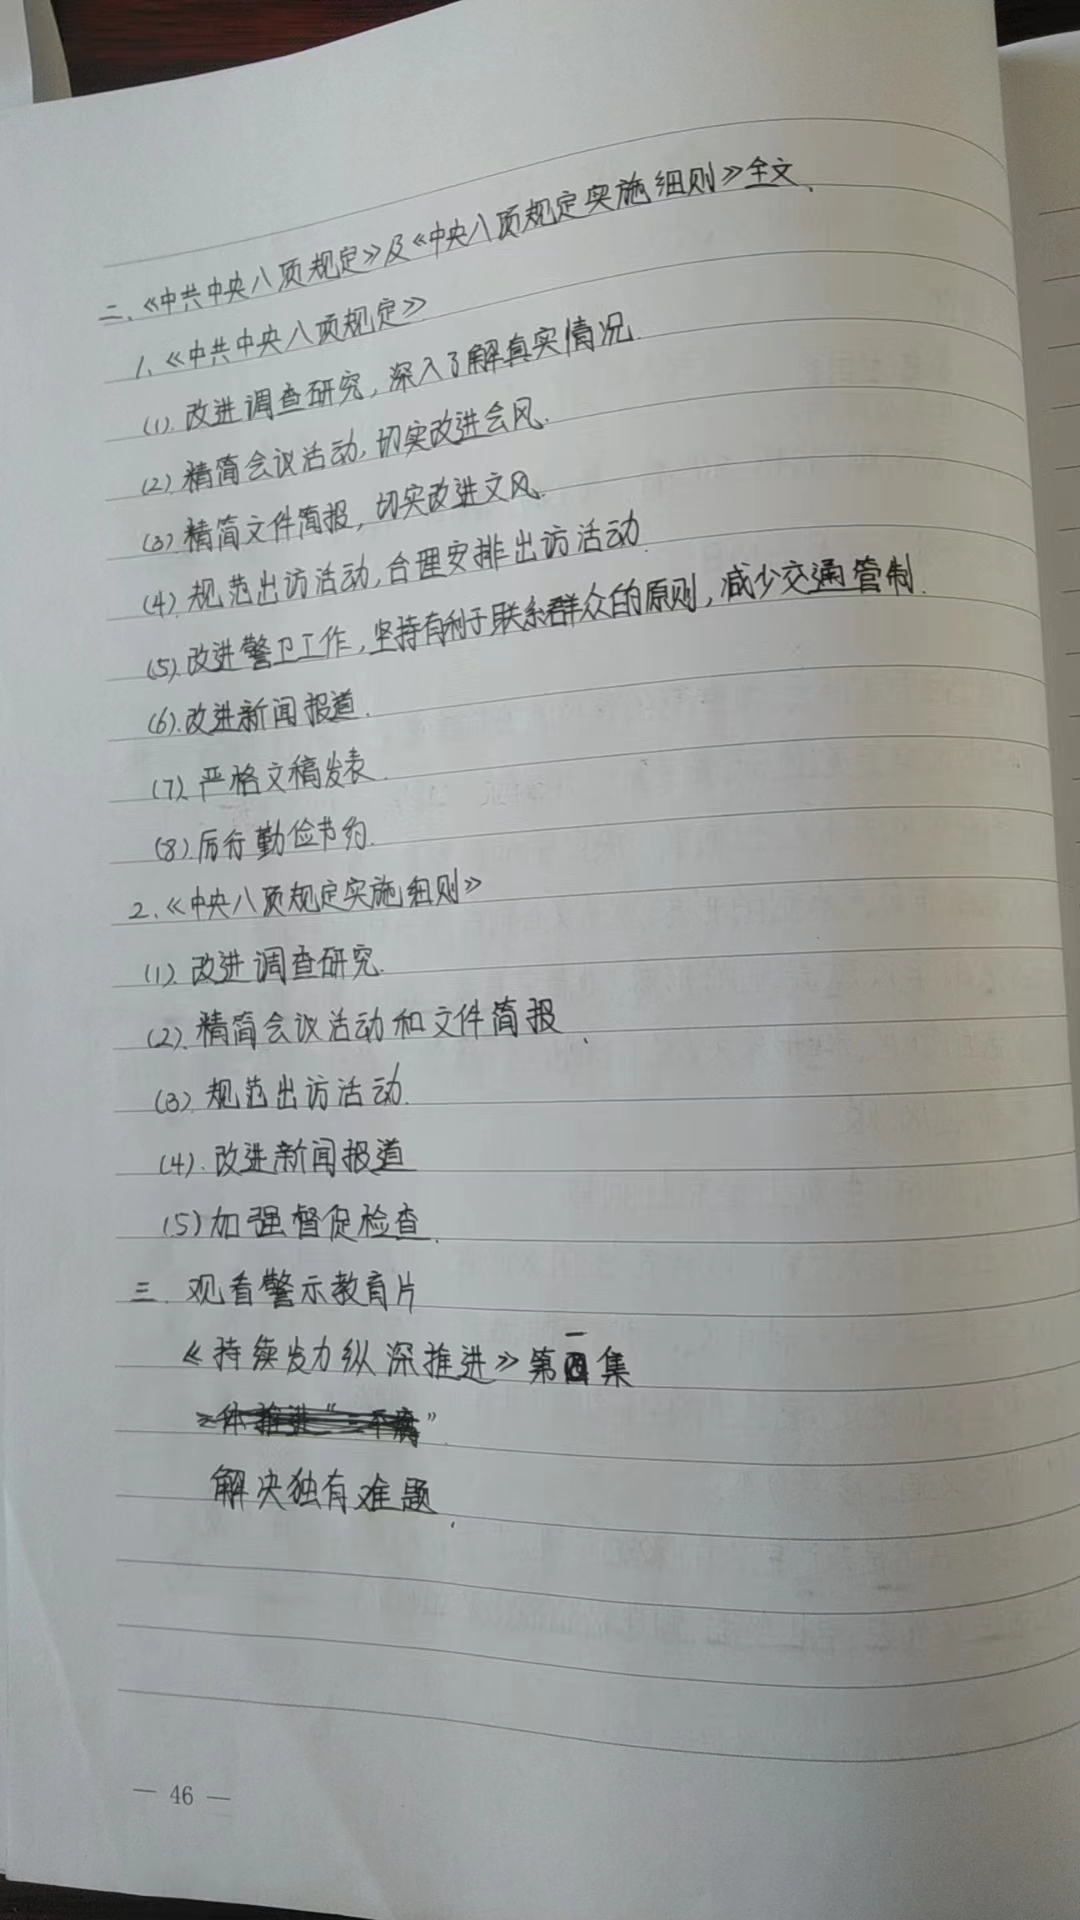 二、《中共中央八项规定》及《中央八项规定实施细则》全文、
1、《中共中央八项规定》
(1). 改进调查研究, 深入了解真实情况.
(2). 精简会议活动, 切实改进会风.
(3). 精简文件简报, 切实改进文风.
(4). 规范出访活动, 合理安排出访活动.
(5). 改进警卫工作, 坚持有利于联系群众的原则, 减少交通管制.
(6). 改进新闻报道.
(7). 严格文稿发表.
(8). 厉行勤俭节约.
2、《中央八项规定实施细则》
(1). 改进调查研究.
(2). 精简会议活动和文件简报、
(3). 规范出访活动.
(4). 改进新闻报道
(5) 加强督促检查.
三. 观看警示教育片
《持续发力纵深推进》第一集
一体推进“三不腐”
解决独有难题.
— 46 —